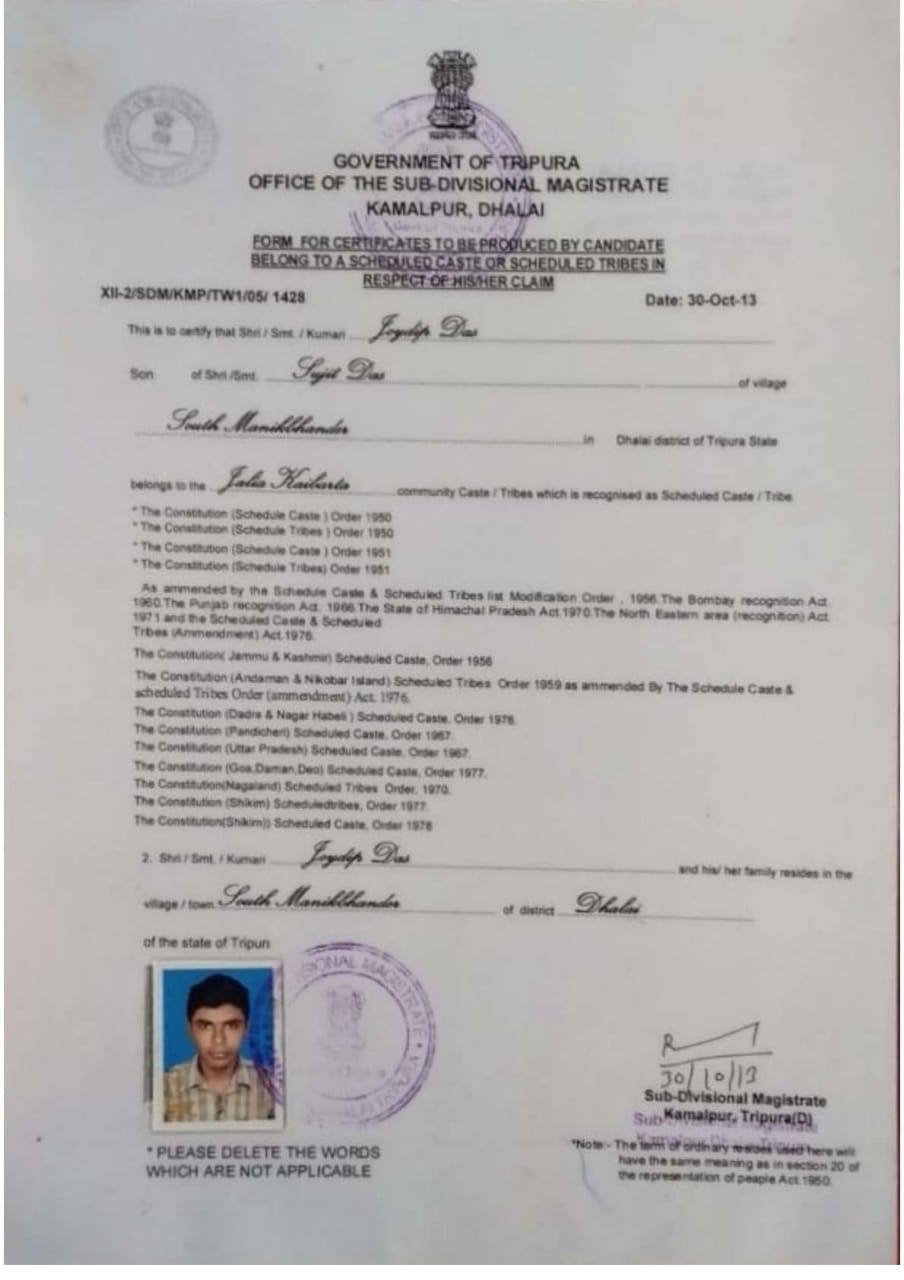 GOVERNMENT OF TRIPURA
OFFICE OF THE SUB-DIVISIONAL MAGISTRATE
KAMALPUR, DHALAI
FORM FOR CERTIFICATES TO BE PRODUCED BY CANDIDATE
BELONG TO A SCHEDULED CASTE OR SCHEDULED TRIBES IN
RESPECT OF HIS/HER CLAIM
XII-2/SDM/KMP/TW1/05/ 1428 Date: 30-Oct-13
This is to certify that Shri / Smt. / Kumari Joydip Das
Son of Shri /Smt. Sujit Das of village
South Manikbhander in Dhalai district of Tripura State
belongs to the Jalia Kaibarta community Caste / Tribes which is recognised as Scheduled Caste / Tribe
* The Constitution (Schedule Caste ) Order 1950
* The Constitution (Schedule Tribes ) Order 1950
* The Constitution (Schedule Caste ) Order 1951
* The Constitution (Schedule Tribes) Order 1951
As ammended by the Schedule Caste & Scheduled Tribes list Modification Order , 1956.The Bombay recognition Act.
1960.The Punjab recognition Act. 1966.The State of Himachal Pradesh Act.1970.The North Eastern area (recognition) Act
1971 and the Scheduled Caste & Scheduled
Tribes (Ammendment) Act.1976.
The Constitution( Jammu & Kashmir) Scheduled Caste, Order 1956
The Constitution (Andaman & Nikobar Island) Scheduled Tribes Order 1959 as ammended By The Schedule Caste &
scheduled Tribes Order (ammendment) Act. 1976.
The Constitution (Dadra & Nagar Habeli ) Scheduled Caste, Order 1976.
The Constitution (Pandicheri) Scheduled Caste, Order 1967.
The Constitution (Uttar Pradesh) Scheduled Caste, Order 1967.
The Constitution (Goa,Daman,Deo) Scheduled Caste, Order 1977.
The Constitution(Nagaland) Scheduled Tribes Order, 1970.
The Constitution (Shikim) Scheduledtribes, Order 1977.
The Constitution(Shikim)) Scheduled Caste, Order 1978
2. Shri / Smt. / Kumari Joydip Das and his/ her family resides in the
village / town South Manikbhander of district Dhalai
of the state of Tripuri
SIONAL MAGISTRATE
DHALAI TRIPURA
30/10/13
Sub-Divisional Magistrate
Kamalpur, Tripura(D)
* PLEASE DELETE THE WORDS
WHICH ARE NOT APPLICABLE
*Note:- The term of ordinary resides used here will
have the same meaning as in section 20 of
the representation of peaple Act.1950.